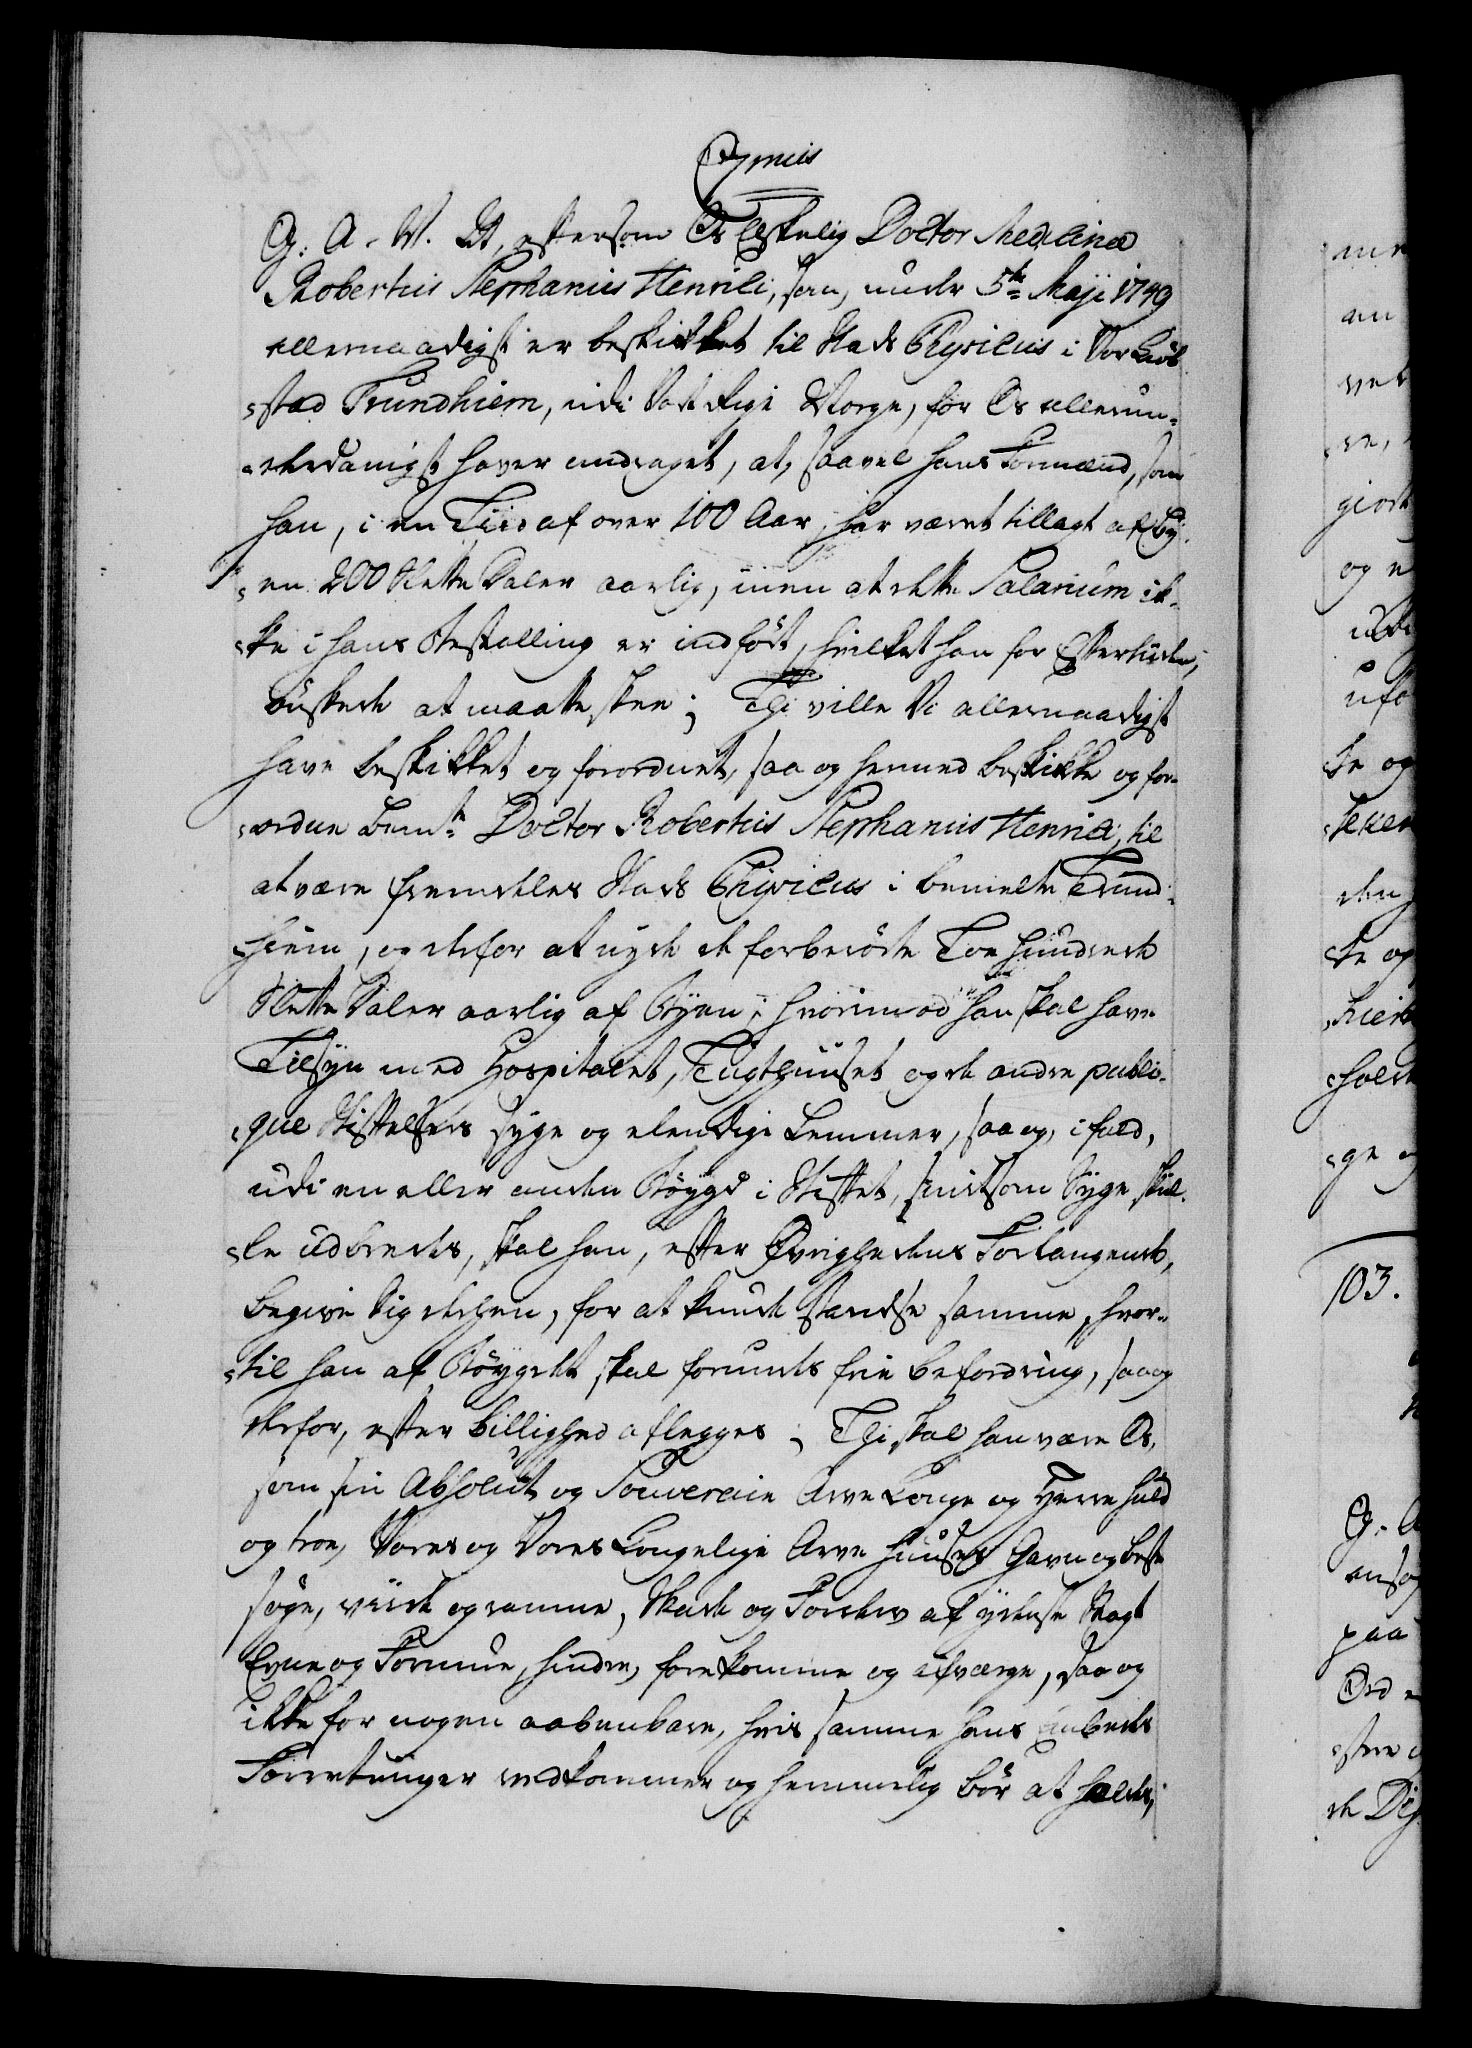 G. A. W. At, eftersom Os Elskelig Doctor Medicinæ
Robertus Stephanus Henrici, som, under 5te Maji 1749
allernaadigst er beskikket til Stads Physicus i Vor Kiöb-
stad Trundhiem, udi Vort Rige Norge, for Os allerun-
derdanigst haver andraget, at, saavel hans Formænd, som
han, i en Tiid af over 100 Aar, har været tillagt af By-
en 200 Slette Daler aarlig, men at dette Salarium ik-
ke i hans Bestalling er indfört, hvilket han for Eftertiden,
önskede at maatte skee; Thi ville Vi allernaadigst
have beskikket og forordnet, saa og hermed beskikke og for-
ordne bemte Doctor Robertus Stephanus Henrici, til
at være fremdeles Stads Physicus i bemelte Trund-
hiem, og derfor at nyde de forberörte Toe Hundrede
Slette Daler aarlig af Byen; hvorimod han skal have
Tilsyn med Hospitalet, Tugthuuset og de andre publi-
que Stiftelsers syge og elendige Lemmer, saa og, ifald,
udi en eller anden Böygd i Stiftet, smitsom Syge skul-
le udbredes, skal han, efter Øvrighedens Forlangende,
begive sig derhen, for at kunde standse samme, hvor-
til han af Böygdet skal forundes frie befordring, saa og
derfor, efter billighed aflegges; Thi skal han være Os,
som sin Absolut og Souverain Arve Konge og Herre huld
og troe, Vores og Vores Kongelige Arve Huuses Gavn og beste
söge, viide og ramme, Skade og Fordærv af yderste Magt
Evne og Formue, hindre, forekomme og afværge, saa og
ikke for nogen aabenbare, hvis samme hans Embeds
Forretninger vedkommer og hemmelig bör at holdes,
103.